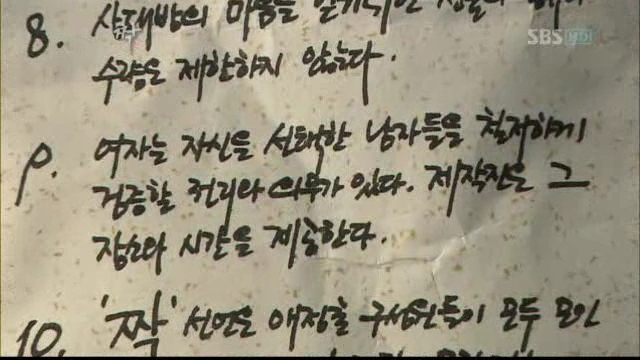 SBS
8. 상대방의 마음을 얻기위한
수량은 제한하지 않는다.
9. 여자는 자신을 선택한 남자들을 철저하게
검증할 권리와 의무가 있다. 제작진은 그
장소와 시간을 제공한다.
10. '짝' 선언은 애정촌 구성원들이 모두 모인